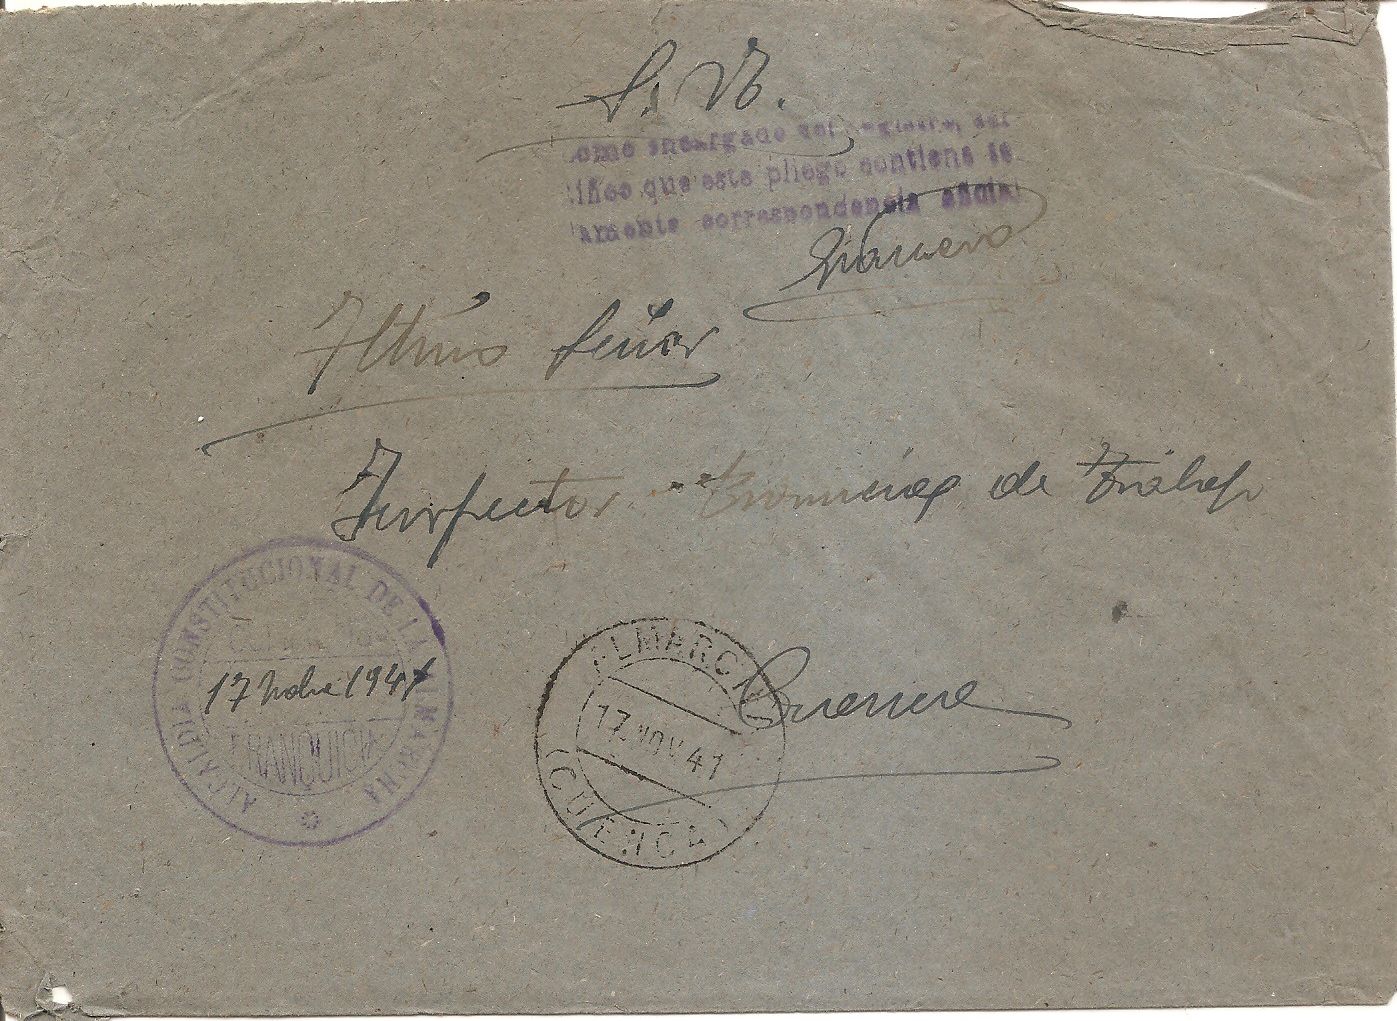 S. N.
como encargado del registro, cer
tifico que este pliego contiene so
lamente correspondencia oficial
Iltmo Señor
Inspector Provincial de Trabajo
Cuenca
ALCALDIA CONSTITUCIONAL DE LA ALMARCHA
17 Nobre 1941
FRANQUICIA
ALMARCHA
17 NOV 41
(CUENCA)